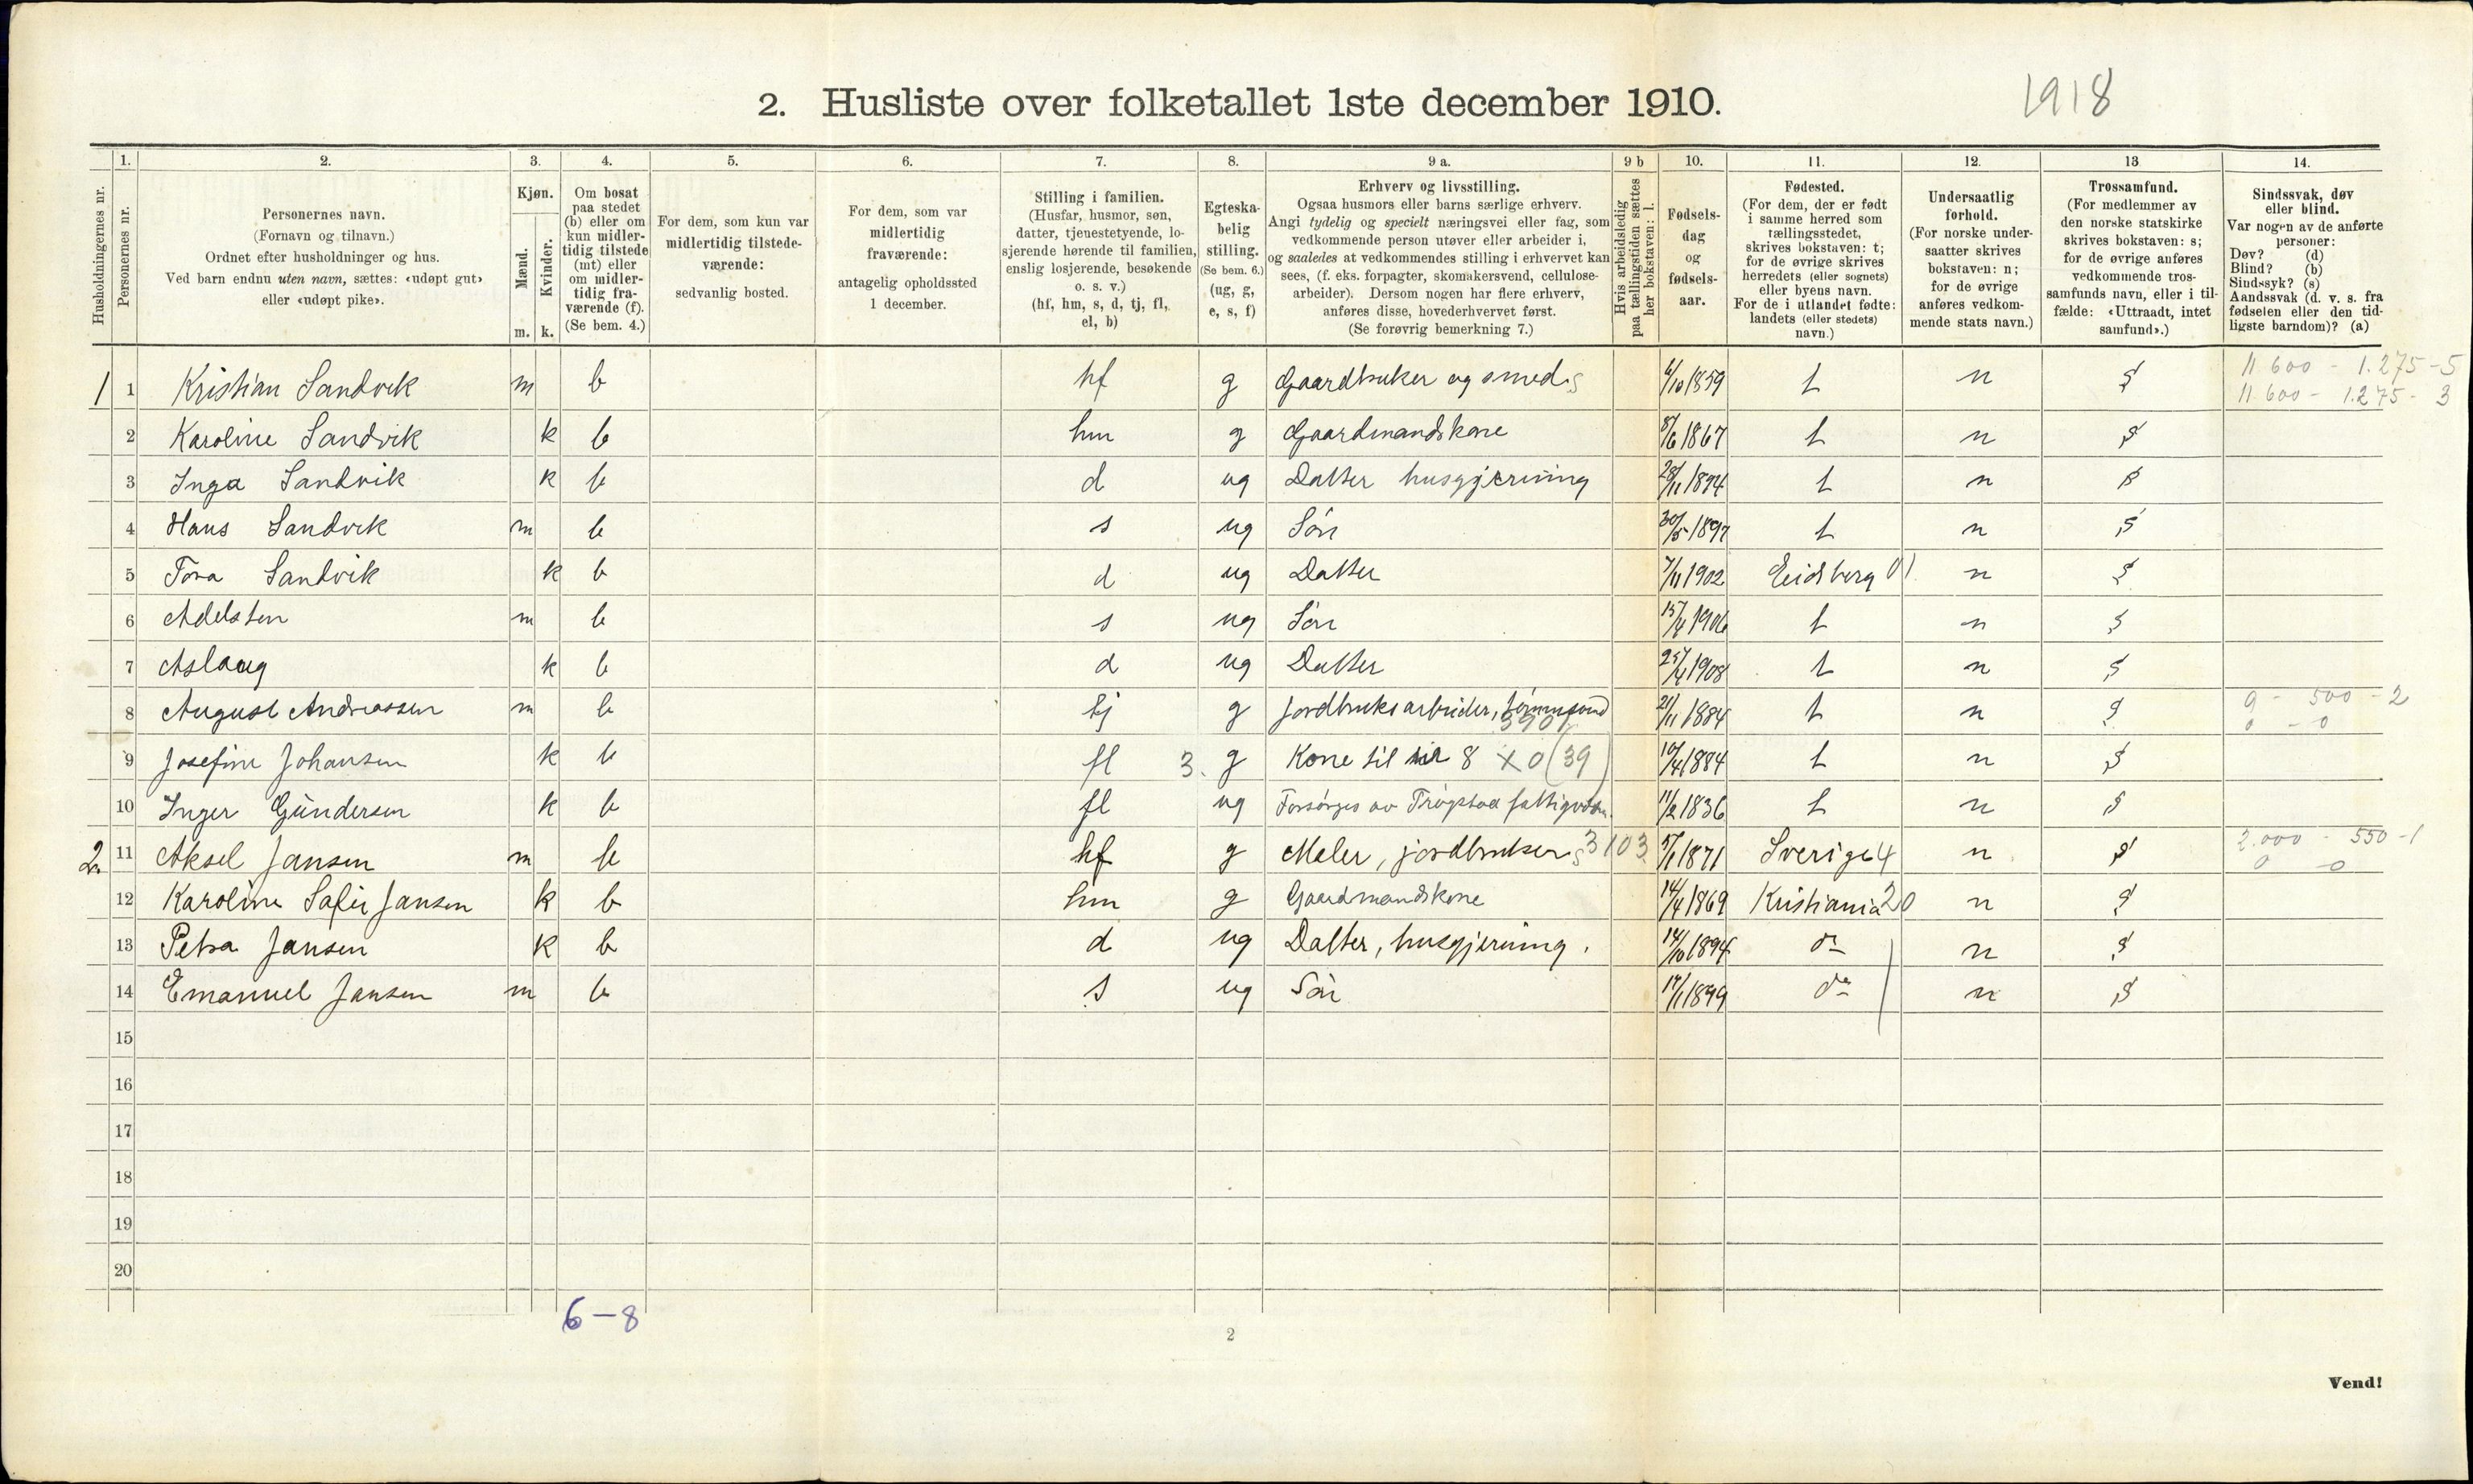 2. Husliste over folketallet 1ste december 1910.
1918
1. 2. 3. 4. 5. 6. 7. 8. 9 a. 9 b 10. 11. 12. 13 14.
Husholdningernes nr.
Personernes nr.
Personernes navn.
(Fornavn og tilnavn.)
Ordnet efter husholdninger og hus.
Ved barn endnu uten navn, sættes: «udøpt gut»
eller «udøpt pike».
Kjøn.
Mænd.
Kvinder.
m. k.
Om bosat
paa stedet
(b) eller om
kun midler-
tidig tilstede
(mt) eller
om midler-
tidig fra-
værende (f).
(Se bem. 4.)
For dem, som kun var
midlertidig tilstede-
værende:
sedvanlig bosted.
For dem, som var
midlertidig
fraværende:
antagelig opholdssted
1 december.
Stilling i familien.
(Husfar, husmor, søn,
datter, tjenestetyende, lo-
sjerende hørende til familien,
enslig losjerende, besøkende
o. s. v.)
(hf, hm, s, d, tj, fl,
el, b)
Egteska-
belig
stilling.
(Se bem. 6.)
(ug, g,
e, s, f)
Erhverv og livsstilling.
Ogsaa husmors eller barns særlige erhverv.
Angi tydelig og specielt næringsvei eller fag, som
vedkommende person utøver eller arbeider i,
og saaledes at vedkommendes stilling i erhvervet kan
sees, (f. eks. forpagter, skomakersvend, cellulose-
arbeider). Dersom nogen har flere erhverv,
anføres disse, hovederhvervet først.
(Se forøvrig bemerkning 7.)
Hvis arbeidsledig
paa tællingstiden sættes
her bokstaven: l.
Fødsels-
dag
og
fødsels-
aar.
Fødested.
(For dem, der er født
i samme herred som
tællingsstedet,
skrives bokstaven: t;
for de øvrige skrives
herredets (eller sognets)
eller byens navn.
For de i utlandet fødte:
landets (eller stedets)
navn.)
Undersaatlig
forhold.
(For norske under-
saatter skrives
bokstaven: n;
for de øvrige
anføres vedkom-
mende stats navn.)
Trossamfund.
(For medlemmer av
den norske statskirke
skrives bokstaven: s;
for de øvrige anføres
vedkommende tros-
samfunds navn, eller i til-
fælde: «Uttraadt, intet
samfund».)
Sindssvak, døv
eller blind.
Var nogen av de anførte
personer:
Døv? (d)
Blind? (b)
Sindssyk? (s)
Aandssvak (d. v. s. fra
fødselen eller den tid-
ligste barndom)? (a)
1 1 Kristian Sandvik m b hf g Gaardbruker og smed s 6/10 1859 t n s 11 600 - 1.275-5
11 600 - 1.275 - 3
2 Karoline Sandvik k b hm g Gaardmandskone 8/6 1867 t n s
3 Inga Sandvik k b d ug Datter husgjerning 28/11 1894 t n s
4 Hans Sandvik m b s ug Sön 30/5 1897 t n s
5 Tora Sandvik k b d ug Datter 7/11 1902 Eidsberg 01 n s
6 Adelsten m b s ug Sön 15/4 1906 t n s
7 Aslaug k b d ug Datter 25/4 1908 t n s
8 August Andreassen m b tj g Jordbruksarbeider, 21/11 1884 t n s 9 - 500 - 2
0 - 0
9 Josefine Johansen k b fl 3. g Kone til nr 8 x 0 (39) 10/4 1884 t n s
10 Inger Gündersen k b fl ug Forsörges av Trögstad fattigvæsen 11/2 1836 t n s
2. 11 Aksel Jansen m b hf g Maler, jordbruker s 3103 5/1 1871 Sverige 4 n s 2.000 - 550 -1
0 - 0
12 Karoline Sofie Jansen k b hm g Gaardmandskone 14/4 1869 Kristiania 20 n s
13 Petra Jansen k b d ug Datter, husgjerning. 14/10 1894 do n s
14 Emanuel Jansen m b s ug Sön 17/1 1899 do n s
15
16
17
18
19
20
6-8
2
Vend!